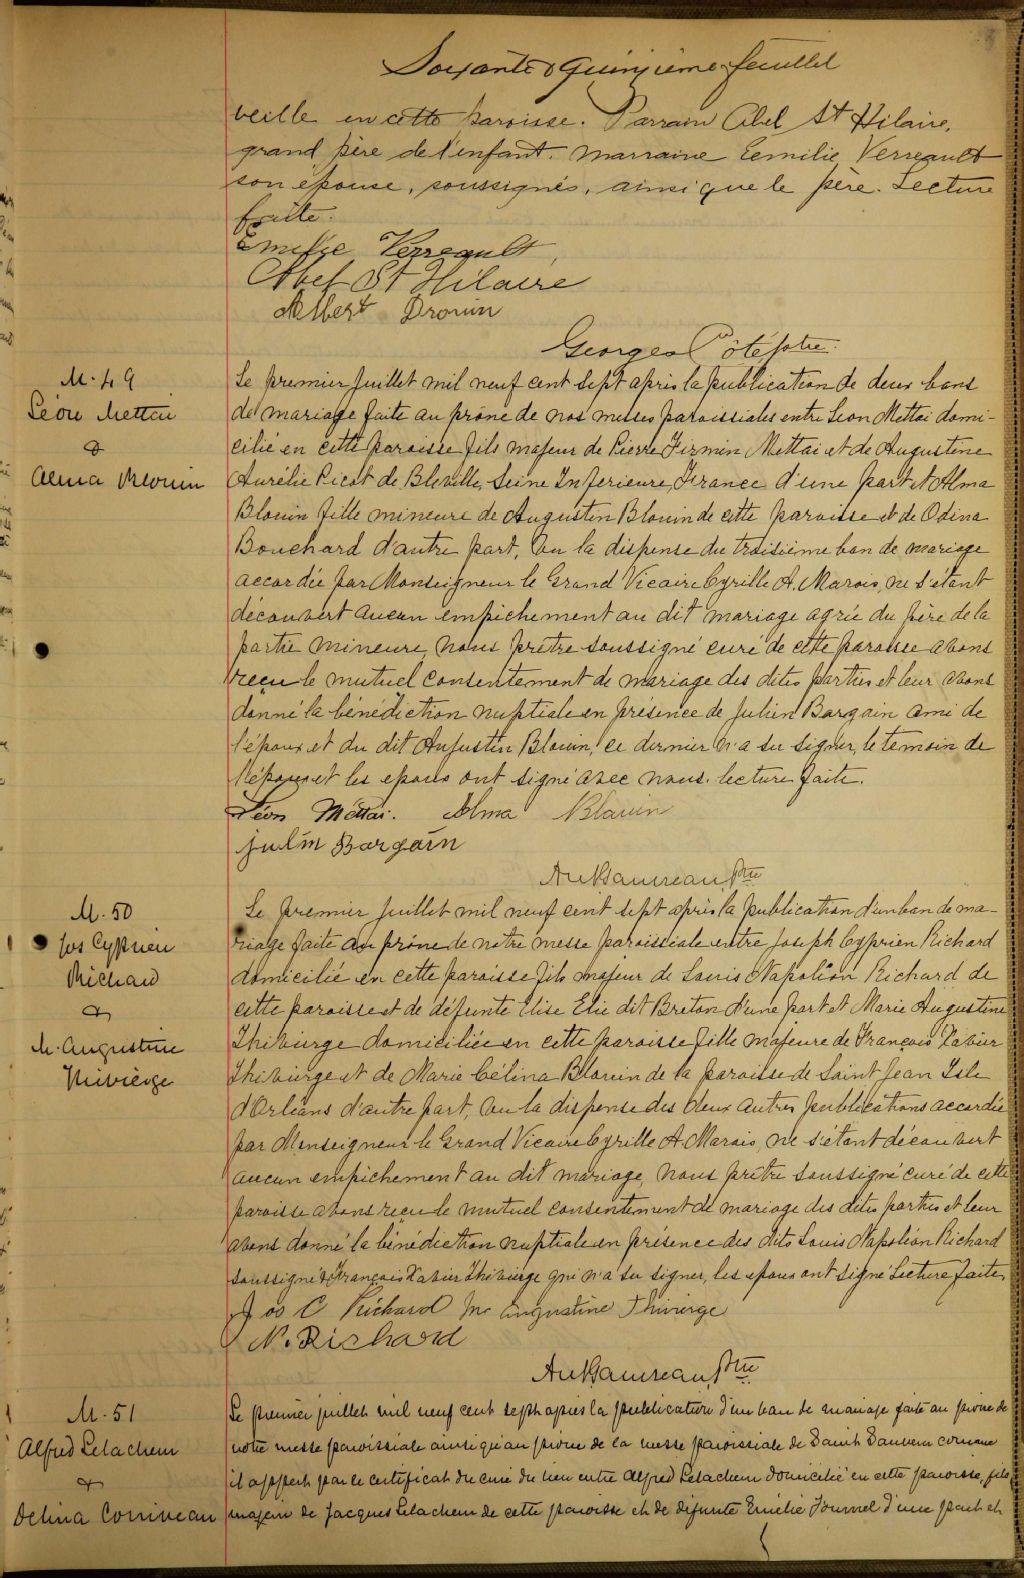 Soixante & Quinzième feuillet
veille en cette paroisse. Parrain Abel St Hilaire,
grand père de l'enfant. Marraine Eemilie Verreault
son épouse, soussignés, ainsi que le père. Lecture
faite.
Emilie Verreault,
Abel St Hilaire
Albert Drouin
Georges Côté ptre.
M. 49
Léon Mettai
&
Alma Blouin
Le premier juillet mil neuf cent sept après la publication de deux bans
de mariage faite au prône de nos messes paroissiales entre Leon Mettai domi-
cilié en cette paroisse fils majeur de Pierre Firmin Mettai et de Augustine
Aurélie Picot de Bleville, Seine Inferieure, France d'une part et Alma
Blouin fille mineure de Augustin Blouin de cette paroisse et de Odina
Bouchard d'autre part, Vu la dispense du troisième ban de mariage
accordée par Monseigneur le Grand Vicaire Cyrille A. Marois, ne s'étant
découvert aucun empichement au dit mariage agrée du père de la
partie mineure, nous prêtre soussigné curé de cette paroisse avons
reçu le mutuel consentement de mariage des dites parties et leur avons
donné la bénédiction nuptiale en présence de Julien Bargain ami de
l'époux et du dit Augustin Blouin, ce dernier n'a su signer, le temoin de
l'époux et les epoux ont signé avec nous. lecture faite.
Léon Méttai. Alma Blouin
julin Bargain
M. 50
Jos Cyprien
Richard
&
M. Augustine
Thivierge
Le premier juillet mil neuf cent sept après la publication d'un ban de ma-
riage faite au prône de notre messe paroissiale entre Joseph Cyprien Richard
domicilié en cette paroisse fils majeur de Louis Napoléon Richard de
cette paroisse et de défunte Elise Elie dit Breton d'une part et Marie Augustine
Thivierge domiciliée en cette paroisse fille majeure de François Xavier
Thivierge et de Marie Célina Blouin de la paroisse de Saint Jean Isle
d'Orléans d'autre part, Vu la dispense des deux autres publications accordée
par Monseigneur le Grand Vicaire Cyrille A. Marois, ne s'étant découvert
aucun empichement au dit mariage, nous prêtre soussigné curé de cette
paroisse avons reçu le mutuel consentement de mariage des dites parties et leur
avons donné la bénédiction nuptiale en présence des dits Louis Napoléon Richard
soussigné & François Xavier Thivierge qui n'a su signer, les epoux ont signé Lecture faite.
Jos C Richard M. Augustine Thivierge
N. Richard
M. 51
Alfred Letachem
&
Delina Corriveau
Le premier juillet mil neuf cent sept après la publication d'un ban de mariage faite au prône de
notre messe paroissiale ainsi qu'au prône de la messe paroissiale de Saint Sauveur comme
il appert par le certificat du curé du lieu entre Alfred Letachem domicilié en cette paroisse, fils
majeur de Jacques Letachem de cette paroisse et de défunte Emélie Journel d'une part et